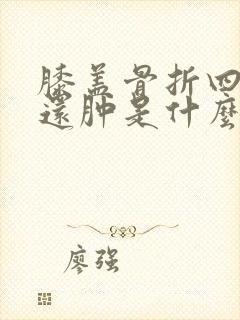 膝盖骨折四
還肿是什麼
廖强